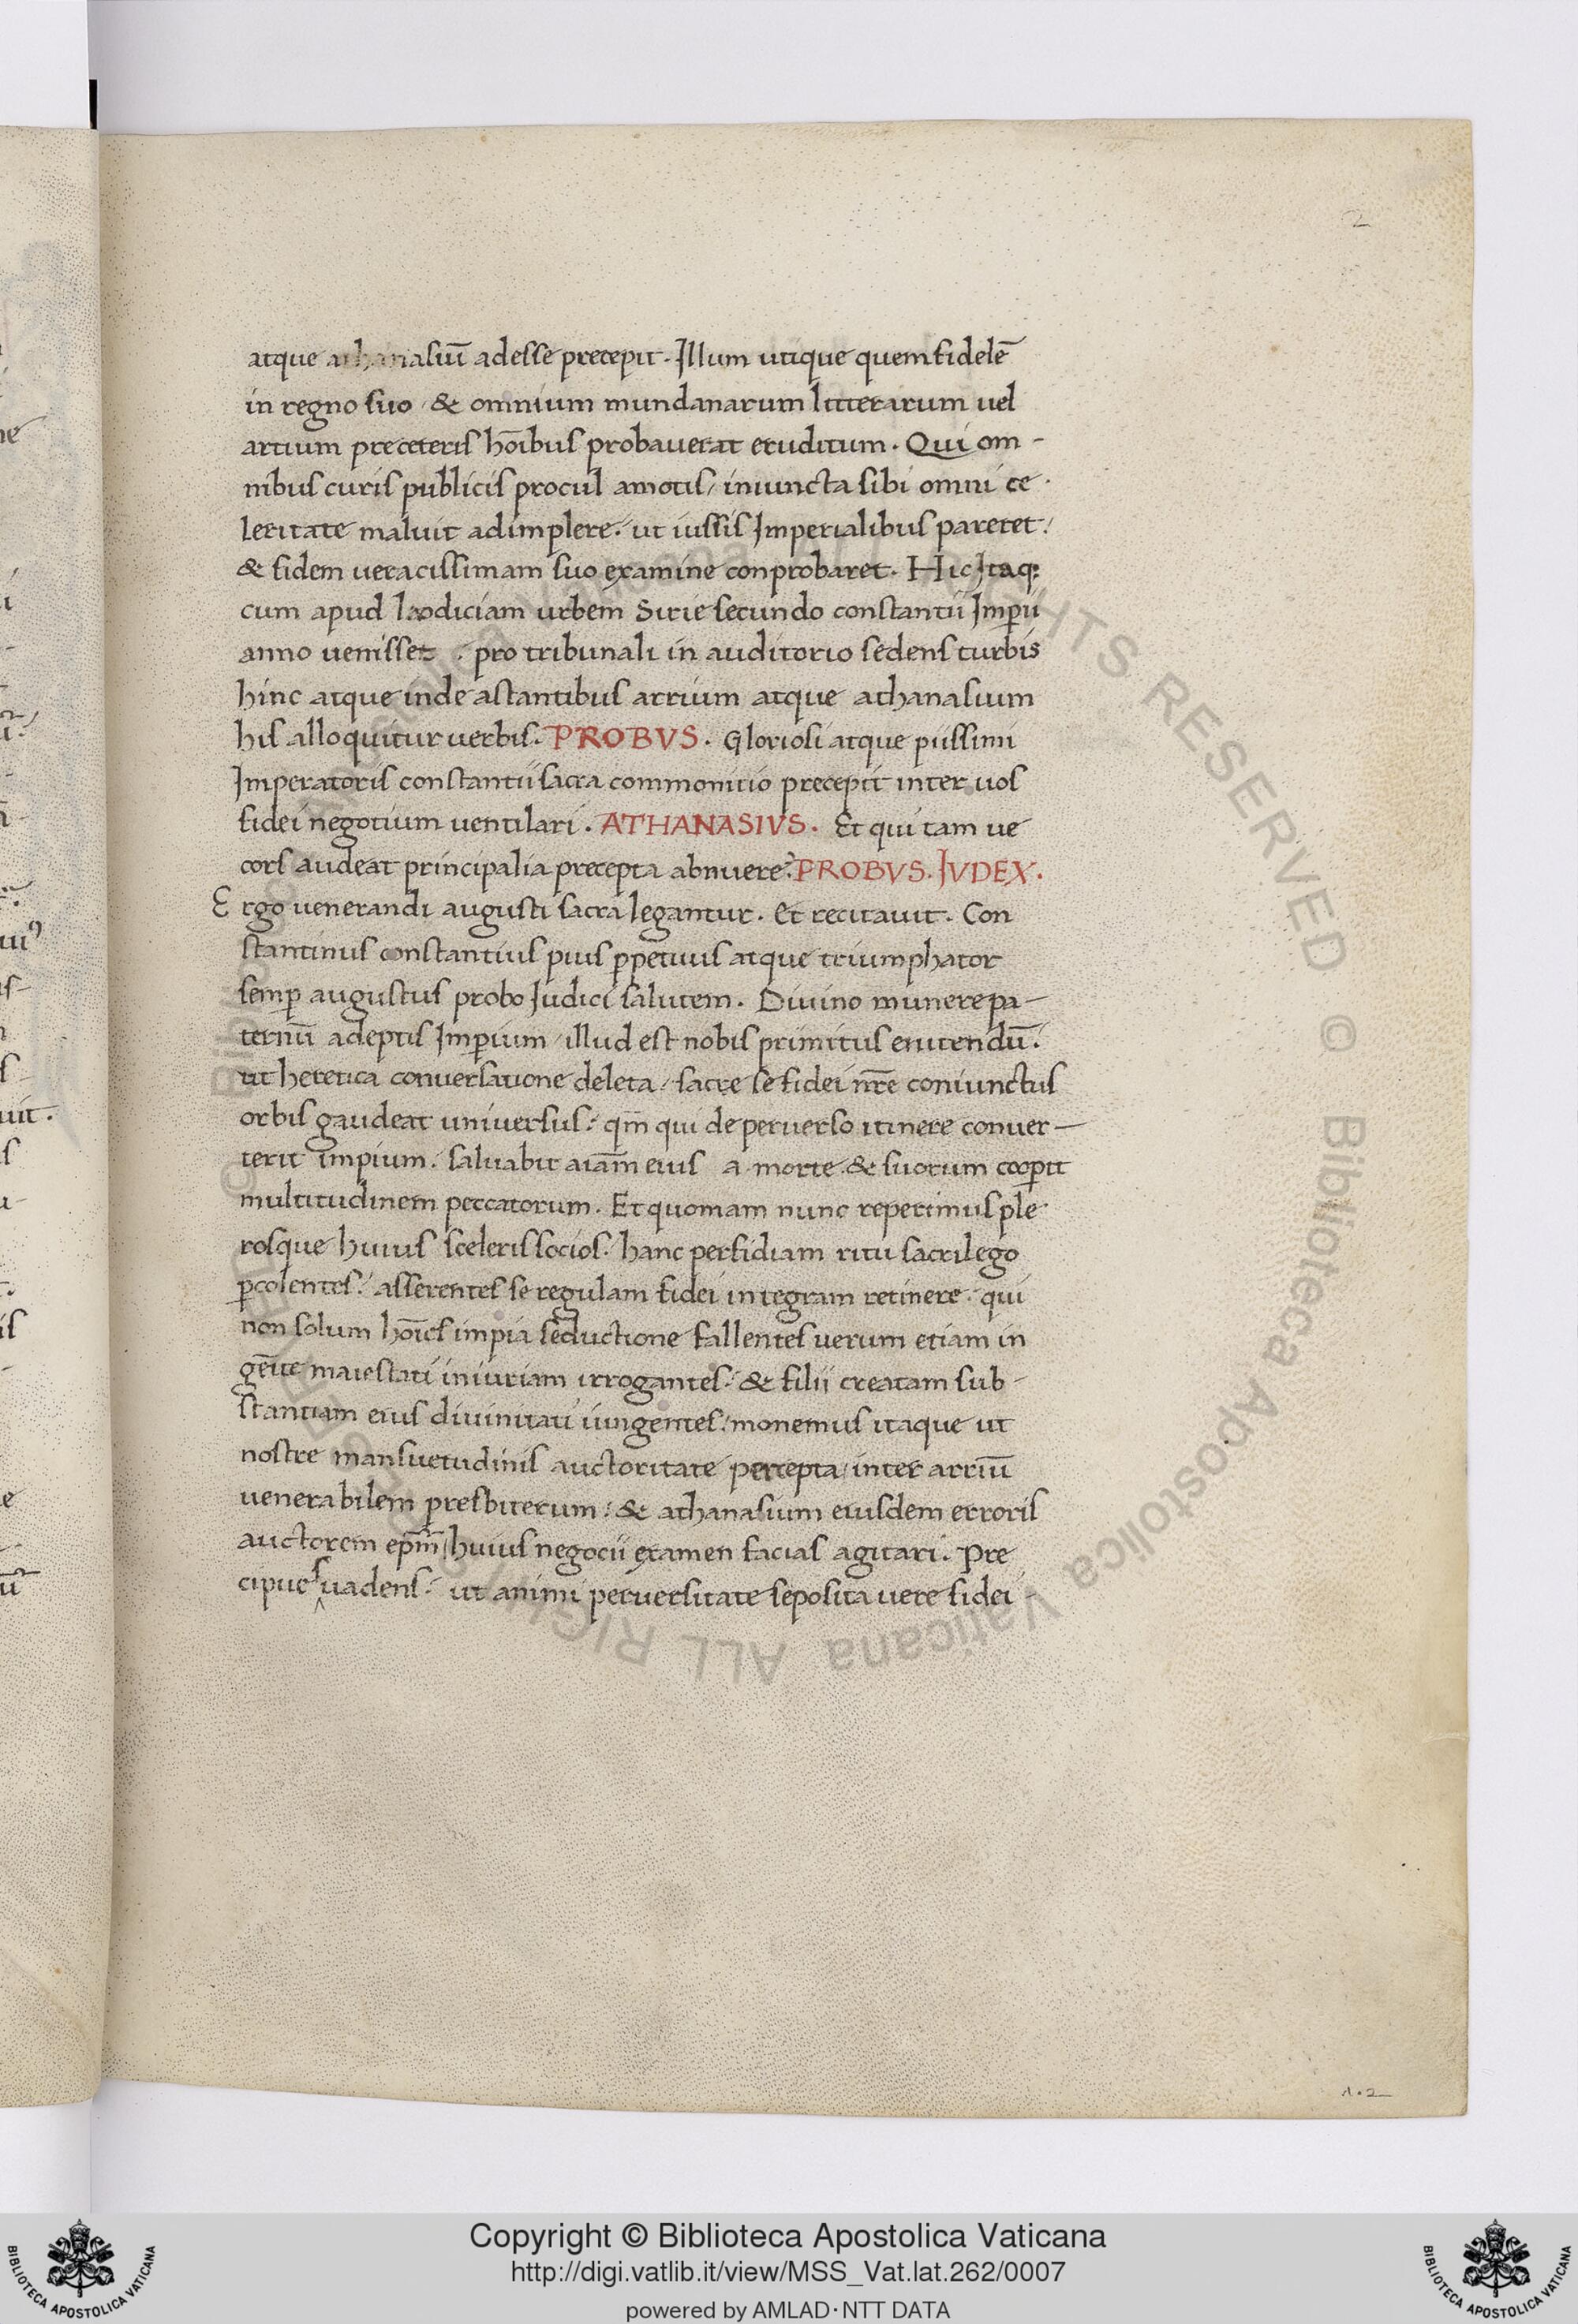 2
atque athanasiū adesse precepit. Illum utique quem fidelē
in regno suo & omnium mundanarum litterarum uel
artium preceteris hoībus probauerat eruditum. Qui om-
nibus curis publicis procul amotis, iniuncta sibi omni ce
leritate maluit adimplere: ut iussis Imperialibus pareret:
& fidem ueracissimam suo examine conprobaret. Hic Itaq:
cum apud laodiciam urbem Sirie secundo constantii Imp̄ii
anno uenisset. pro tribunali in auditorio sedens turbis
hinc atque inde astantibus arrium atque athanasium
his alloquitur uerbis. PROBVS. Gloriosi atque piissimi
Imperatoris constantii sacra commonitio precepit inter uos
fidei negotium uentilari. ATHANASIVS. Et qui tam ue
cors audeat principalia precepta abnuere? PROBVS. JVDEX.
Ergo uenerandi augusti sacra legantur. Et recitauit. Con
stantinus constantius pius p̱petuus atque triumphator
semp̱ augustus probo Judici salutem. Diuino munere pa-
ternū adeptis Imp̱ium, illud est nobis primitus enitendū:
ut heretica conuersatione deleta, sacre se fidei nr̄e coniunctus
orbis gaudeat uniuersus: qm̄ qui de peruerso itinere conuer-
terit impium. saluabit aīam eius a morte & suorum coop̱it
multitudinem peccatorum. Et quoniam nunc reperimus ple
rosque huius sceleris socios. hanc perfidiam ritu sacrilego
p̱colentes: asserentes se regulam fidei integram retinere. qui
non solum hoīes impia seductione fallentes uerum etiam in
genite maiestati iniuriam irrogantes: & filii creatam sub-
stantiam eius diuinitati iungentes: monemus itaque ut
nostre mansuetudinis auctoritate percepta, inter arriū
uenerabilem presbiterum: & athanasium eiusdem erroris
auctorem ep̄m huius negocii examen facias agitari. Pre
cipue suadens: ut animi peruersitate seposita uere fidei-
1.2
© Biblioteca Apostolica Vaticana ALL RIGHTS RESERVED © Biblioteca Apostolica Vaticana ALL RIGHTS RESERVED
Copyright © Biblioteca Apostolica Vaticana
http://digi.vatlib.it/view/MSS_Vat.lat.262/0007
powered by AMLAD·NTT DATA
BIBLIOTECA APOSTOLICA VATICANA
BIBLIOTECA APOSTOLICA VATICANA